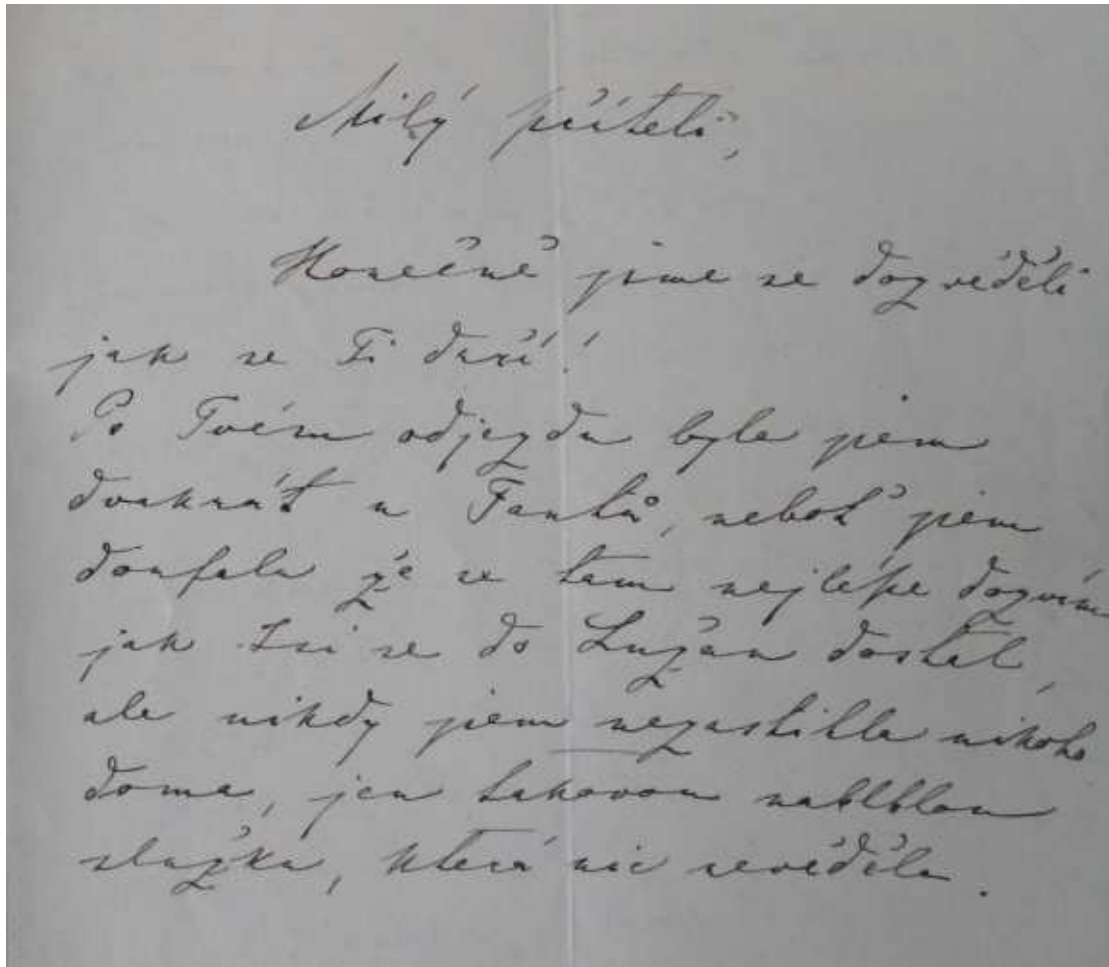 Milý příteli,
Konečně jsme se dozvěděli
jak se Ti daří!
Po Tvém odjezdu byla jsem
dvakrát u Fantů, neboť jsem
doufala že se tam nejlépe dozvím
jak Jsi se do Lužan dostal,
ale nikdy jsem nezastihla nikoho
doma, jen takovou nablblou
služku, která nic nevěděla.